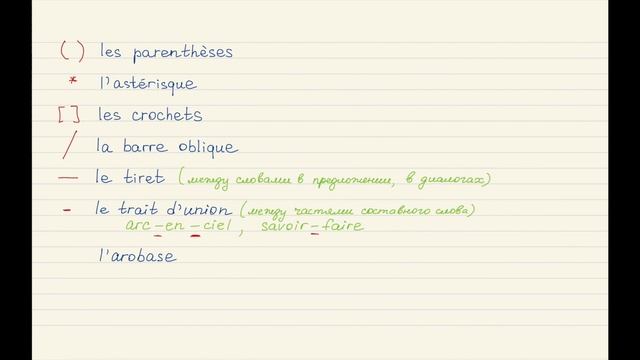 ( ) les parenthèses
* l'astérisque
[ ] les crochets
/ la barre oblique
— le tiret (между словами в предложении, в диалогах)
- le trait d'union (между частями составного слова)
arc-en-ciel, savoir-faire
l'arobase